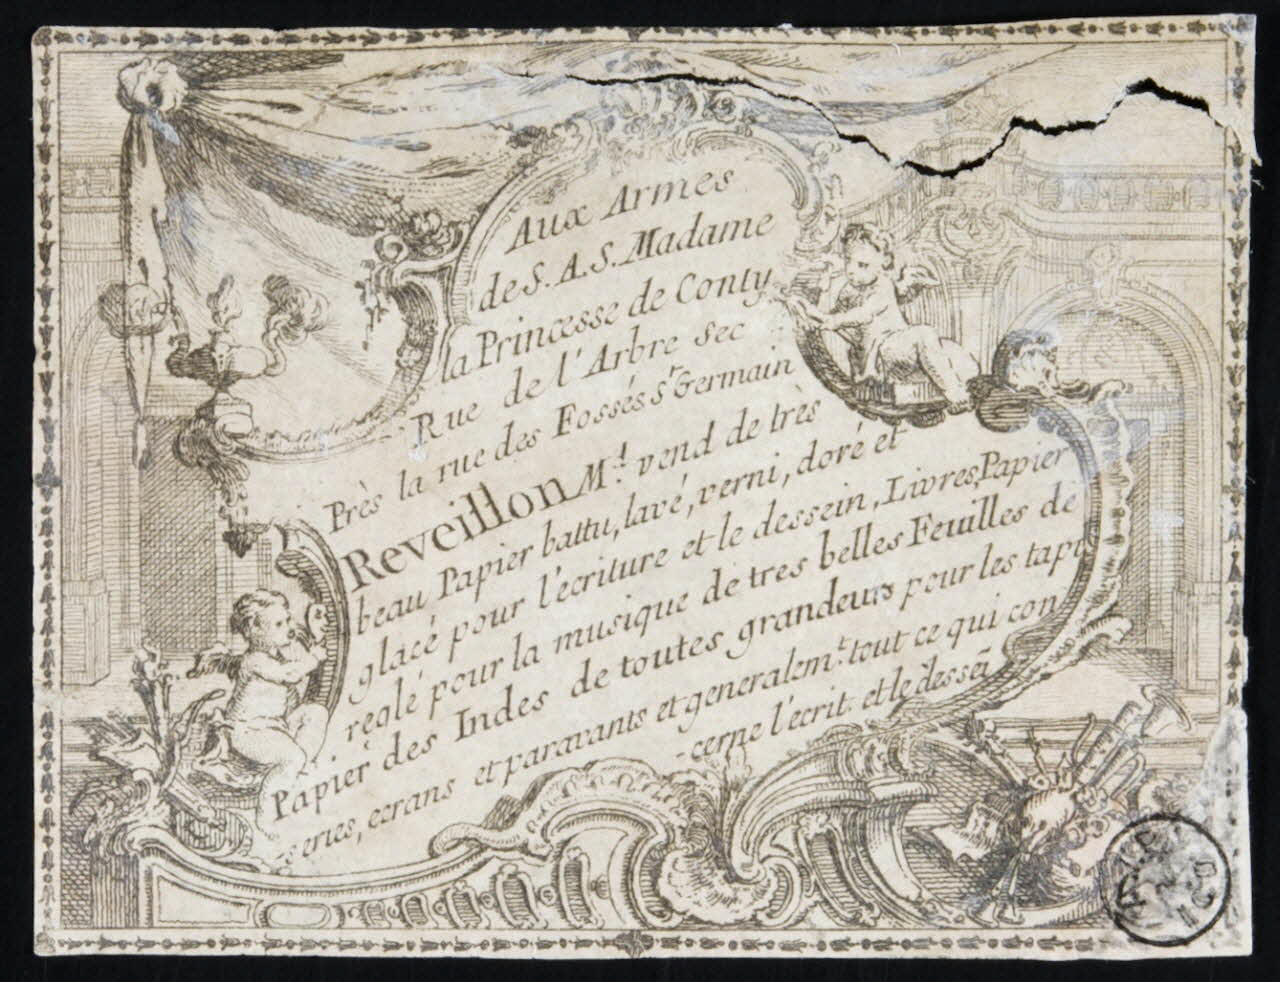 Aux Armes
de S. A. S. Madame
la Princesse de Conty
Rue de l'Arbre sec
Près la rue des Fossés St Germain
Reveillon Md. vend de très
beau Papier battu, lavé, verni, doré et
glacé pour l'ecriture et le dessein, Livres, Papier
reglé pour la musique de tres belles Feuilles de
Papier des Indes de toutes grandeurs pour les tapis
series, ecrans et paravants et generalemt. tout ce qui con
-cerne l'ecrit. et le dessei